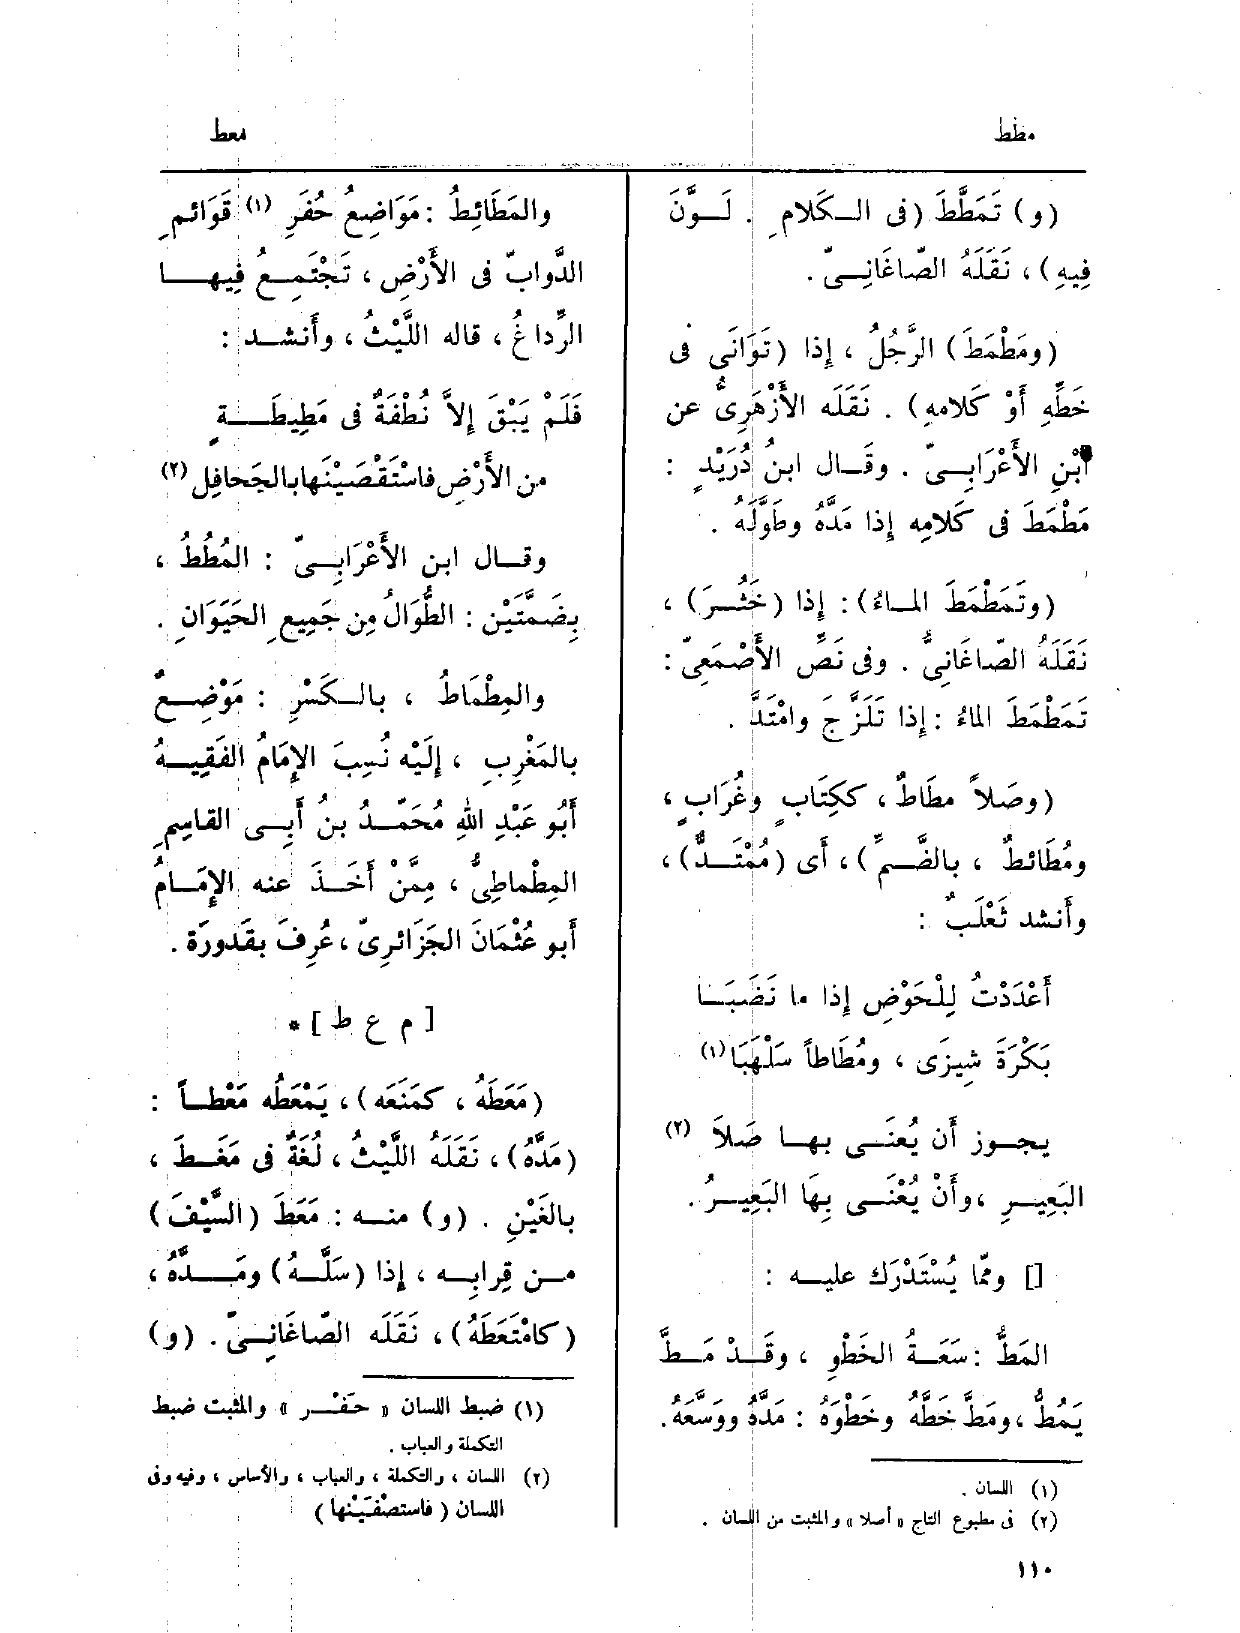 مطط
معط
(و) تَمَطَّطَ (فى الـكَلامِ . لَـوَّنَ
فِيهِ) ، نَقَلَهُ الصّاغَانِـىّ .
(ومَطْمَطَ) الرَّجُلُ ، إذا (تَوَانَى فى
خَطِّهِ أَوْ كَلامهِ) . نَقَلَه الأَزْهَرِىُّ عن
ابْنِ الأَعْرَابِـىّ . وقَـال ابنُ دُرَيْدٍ :
مَطْمَطَ فى كَلامِه إذا مَدَّهُ وطَوَّلَهُ .
(وتَمَطْمَطَ المـاءُ) : إذا (خَثُـرَ) ،
نَقَلَهُ الصّاغَانِىُّ . وفى نَصِّ الأَصْمَعِىّ :
تَمَطْمَطَ الماءُ : إذا تَلَزَّجَ وامْتَدَّ .
(وصَلاً مطَاطٌ ، ككِتَابٍ وغُرَابٍ ،
ومُطَائطٌ ، بالضَّـمِّ) ، أى (مُمْتَـدٌّ) ،
وأَنشد ثَعْلَبٌ :
أَعْدَدْتُ لِلْحَوْضِ إذا ما نَضَبَـا
بَكْرَةَ شِيزَى ، ومُطَاطاً سَلْهَبَا (١)
يجـوز أَن يُعنَـى بهـا صَلَا (٢)
البَعِيـرِ ، وأَنْ يُعْنَـى بِهَا البَعِيـرُ .
[] ومّا يُسْتَدْرَك عليـه :
المَطُّ : سَعَـةُ الخَطْوِ ، وقَـدْ مَـطَّ
يَمُطُّ ، ومَطَّ خَطَّهُ وخَطْوَهُ : مَدَّهُ ووَسَّعَهُ .
(١) اللسان .
(٢) فى مطبوع التاج «أصلا» والمثبت من اللسان .
١١٠
والمَطَائِطُ : مَوَاضِعُ حُفَرِ (١) قَوَائمِ
الدَّوابِّ فى الأَرْضِ ، تَجْتَمِـعُ فِيهـا
الرِّداغُ ، قاله اللَّيْثُ ، وأَنشـد :
فَلَمْ يَبْقَ إلاَّ نُطْفَةٌ فى مَطِيطَـةٍ
من الأَرْضِ فاسْتَقْصَيْنَها بالجَحافِلِ (٢)
وقـال ابن الأَعْرَابِـىّ : المُطُطُ ،
بِضَمَّتَيْن : الطُّوَالُ مِن جَمِيعِ الحَيَوَانِ .
والمِطْمَاطُ ، بالـكَسْرِ : مَوْضِـعٌ
بالمَغْرِبِ ، إلَيْه نُسِبَ الإمَامُ الفَقِيـهُ
أَبُو عَبْدِ اللهِ مُحَمَّـدُ بنُ أَبِـى القاسِمِ
المِطْماطِىُّ ، مِمَّنْ أَخَـذَ عنه الإمَـامُ
أبو عُثْمَانَ الجَزَائرِىّ ، عُرِفَ بقَدورَة .
[ م ع ط ] *
(مَعَطَهُ ، كمَنَعَه) ، يَمْعَطُه مَعْطـاً :
(مَدَّهُ) ، نَقَلَهُ اللَّيْثُ ، لُغَةٌ فى مَغَـطَ ،
بالغَيْنِ . (و) منـه : مَعَطَ (السَّيْفَ)
مـن قِرابِـه ، إذا (سَلَّـهُ) ومَـدَّهُ ،
(كامْتَعَطَهُ) ، نَقَلَه الصّاغَانِـىّ . (و)
(١) ضبط اللسان « حَفْـر » والمثبت ضبط
التكملة والعباب .
(٢) اللسان ، والتكملة ، والعباب ، والأساس ، وفيه وفى
اللسان ( فاستصْفَيْنها )